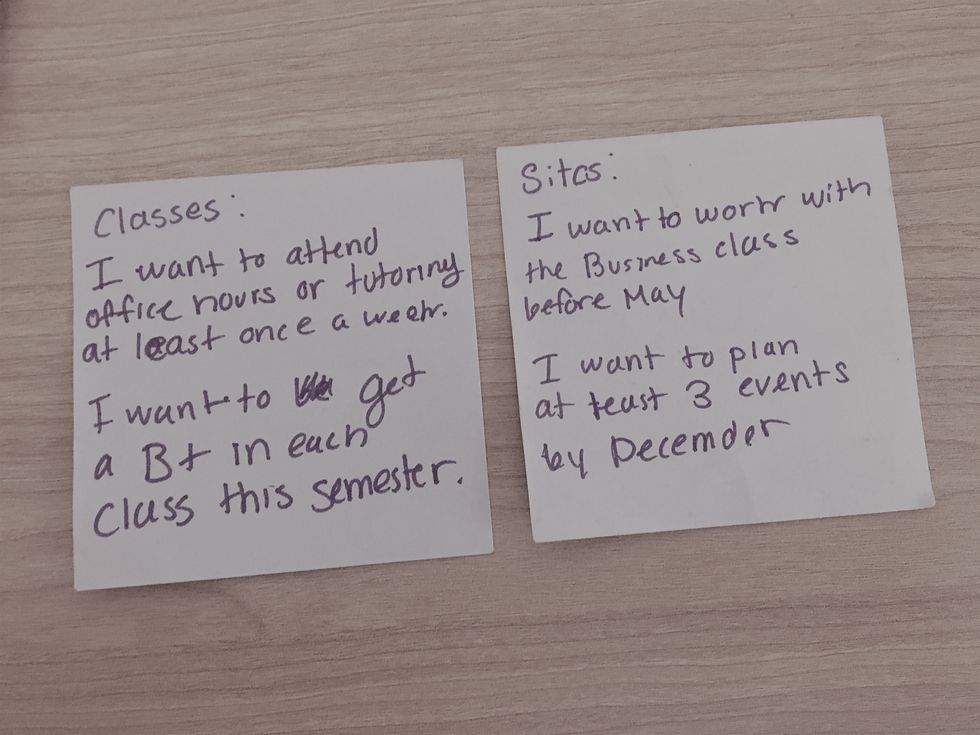 Classes:
I want to attend
office hours or tutoring
at least once a week.
I want to get
a B+ in each
class this semester.
Sitas:
I want to work with
the Business class
before May
I want to plan
at least 3 events
by December